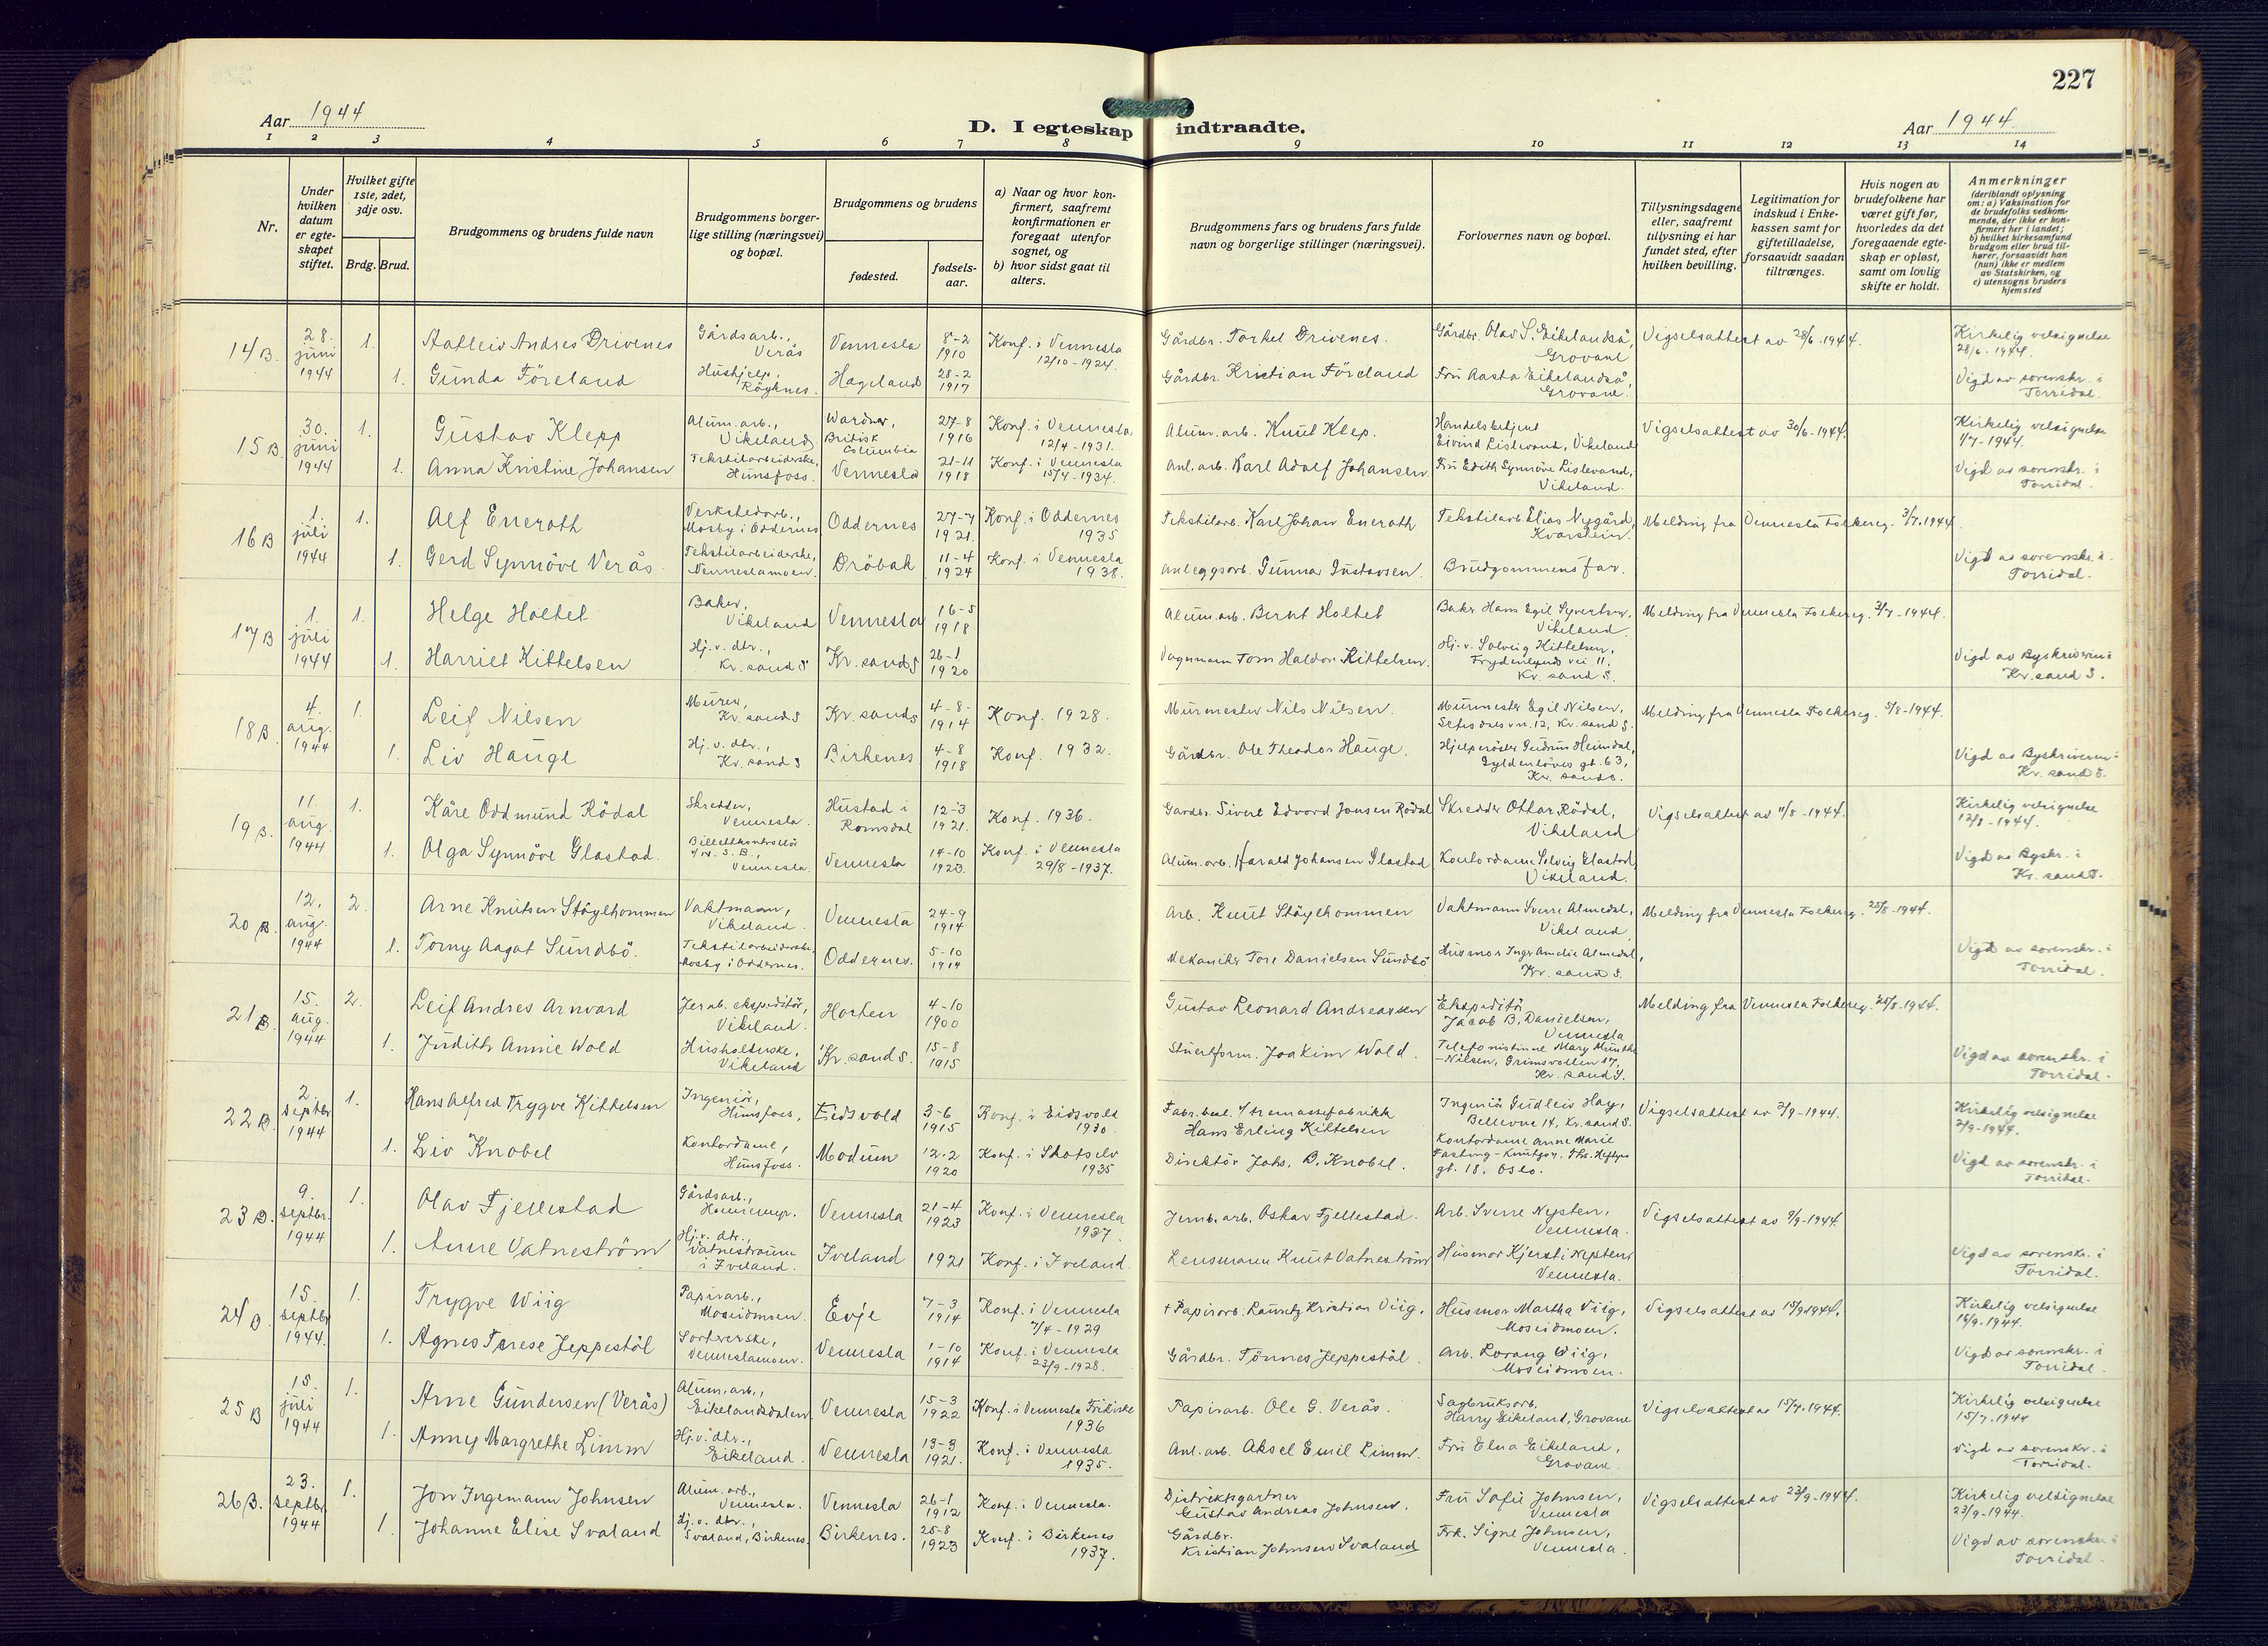 227
Aar 1944
D. I egteskap indtraadte.
Aar 1944.
1 2 3 4 5 6 7 8 9 10 11 12 13 14
Nr.
Under hvilken datum er egteskapet stiftet.
Hvilket gifte 1ste, 2det, 3dje osv.
Brdg. Brud.
Brudgommens og brudens fulde navn
Brudgommens borgerlige stilling (næringsvei) og bopæl.
Brudgommens og brudens
fødested.
fødselsaar.
a) Naar og hvor konfirmert, saafremt konfirmationen er foregaat utenfor sognet, og
b) hvor sidst gaat til alters.
Brudgommens fars og brudens fars fulde navn og borgerlige stillinger (næringsvei).
Forlovernes navn og bopæl.
Tillysningsdagene eller, saafremt tillysning ei har fundet sted, efter hvilken bevilling.
Legitimation for indskud i Enkekassen samt for giftetilladelse, forsaavidt saadan tiltrænges.
Hvis nogen av brudefolkene har været gift før, hvorledes da det foregaaende egteskap er opløst, samt om lovlig skifte er holdt.
Anmerkninger
(deriblandt oplysning om: a) Vaksination for de brudefolks vedkommende, der ikke er konfirmert her i landet; b) hvilket kirkesamfund brudgom eller brud tilhører, forsaavidt han (hun) ikke er medlem av Statskirken, og c) utensogns bruders hjemsted
14 B. 28. juni 1944 1. Aatleiv Andres Drivenes Gårdsarb., Verås Vennesla 8-2 1910 Konf. i Vennesla 12/10-1924. Gårdbr. Torkel Drivenes. Gårdbr. Olav S. Eikelandså, Grovane Vigselsattest av 28/6-1944. Kirkelig velsignelse 28/6-1944.
1. Gunda Föreland Hushjelp, Röyknes. Hægeland 28-2 1917 Gårdbr. Kristian Föreland Fru Aasta Eikelandså, Grovane. Vigd av sorenskr. i Torridal.
15 B. 30. juni 1944 1. Gustav Klepp Alum. arb., Vikeland Wardner, British Columbia 27-8 1916 Konf. i Vennesla 12/4-1931. Alum. arb. Knut Klep. Handelsbetjent Eivind Listevand, Vikeland Vigselsattest av 30/6-1944. Kirkelig velsignelse 1/7-1944.
1. Anna Kristine Johansen Tekstilarbeiderske, Hunsfoss. Vennesla 21-11 1918 Konf. i Vennesla 15/4-1934. Anl. arb. Karl Adolf Johansen. Fru Edith Synnöve Lislevand, Vikeland. Vigd av sorenskr. i Torridal.
16 B 1. juli 1944 1. Alf Eneroth Verkstedarb., Mosby i Oddernes Oddernes 27-7 1921. Konf. i Oddernes 1935 Tekstilarb. Karl Johan Eneroth Tekstilarb. Elias Nygård, Kvarstein. Melding fra Vennesla Folkereg. 3/7-1944.
1. Gerd Synnöve Verås. Tekstilarbeiderske, Venneslamoen. Dröbak 11-4 1924 Konf. i Vennesla 1938. Anleggsarb. Gunnar Gustavsen. Brudgommens far. Vigd av sorenskr. i Torridal.
17 B 1. juli 1944 1. Helge Holtet Baker, Vikeland Vennesla 16-5 1918 Alum. arb. Bernt Holtet Baker Hans Egil Syvertsen, Vikeland. Melding fra Vennesla Folkereg. 3/7-1944.
1. Harriet Kittelsen Hj.v. dtr., Kr.sand S Kr.sand S 26-1 1920 Vognmann Tom Haldor Kittelsen. Hj.v. Solveig Kittelsen, Frydenlunds vei 11. Kr.sand S. Vigd av Byskriveren i Kr.sand S.
18 B. 4. aug. 1944 1. Leif Nilsen Murer, Kr.sand S Kr.sand S 4-8- 1914 Konf. 1928. Murmester Nils Nilsen. Murmester Egil Nilsen, Setesdalsvn. 12, Kr.sand S. Melding fra Vennesla Folkereg. 5/8-1944.
1. Liv Hauge Hj.v. dtr., Kr.sand S Birkenes 4-8 1918 Konf. 1932. Gårdbr. Ole Theodor Hauge. Hjelpesöster Gudrun Heimdal, Gyldenlöves gt. 63, Kr.sand S. Vigd av Byskriveren i Kr.sand S.
19 B. 11. aug. 1944 1. Kåre Oddmund Rödal Skredder, Vennesla. Hustad i Romsdal 12-3 1921. Konf. 1936. Gårdbr. Sivert Edvard Jonsen Rödal Skredder Ottar Rödal, Vikeland Vigselsattest av 11/8-1944. Kirkelig velsignelse 12/8-1944.
1. Olga Synnöve Glastad. Billettkontrollör v/N.S.B., Vennesla. Vennesla 14-10 1923. Konf. i Vennesla 29/8-1937. Alum. arb. Harald Johansen Glastad Kontordame Solveig Glastad, Vikeland. Vigd av Byskr. i Kr.sand S.
20 B. 12. aug. 1944 2. Arne Knutsen Stöylhommen Vaktmann, Vikeland. Vennesla 24-9 1914 Arb. Knut Stöylhommen Vaktmann Sverre Almedal, Vikeland Melding fra Vennesla Folkereg. 25/8-1944.
1. Torny Aagat Sundbö. Tekstilarbeiderske, Mosby i Oddernes. Oddernes. 5-10 1914 Mekaniker Tore Danielsen Sundbö Husmor Inger Amelie Almedal, Kr.sand S. Vigd av sorenskr. i Torridal.
21 B. 15. aug. 1944 2. Leif Andres Arnvard Jernb. ekspeditör, Vikeland. Horten 4-10 1900 Gustav Leonard Andreassen Ekspeditör Jacob B. Danielsen, Vennesla Melding fra Vennesla Folkereg. 25/8-1944.
1. Judith Annie Wold Husholderske, Vikeland Kr.sand S. 15-8 1915 Stuertform. Joakim Wold. Telefonistinne Mary Munthe-Nilsen, Grimsvollen 17, Kr.sand S. Vigd av sorenskr. i Torridal.
22 B. 2. septbr 1944 1. Hans Alfred Trygve Kittelsen Ingeniör, Hunsfoss, Eidsvold 3-6 1915 Konf. i Eidsvold 1930. Fabr. best. v/tremassefabrikk Hans Erling Kittelsen Ingeniör Gudleiv Høy, Bellevue 14, Kr.sand S. Vigselsattest av 2/9-1944. Kirkelig velsignelse 2/9-1944.
1. Liv Knobel Kontordame, Hunsfoss. Modum 12-2 1920 Konf. i Skotselv 1935 Direktör Johs. B. Knobel. Kontordame Anne Marie Fasting- Ths. Heftyes gt. 18, Oslo. Vigd av sorenskr. i Torridal.
23 B. 9. septbr. 1944 1. Olav Fjellestad Gårdsarb., Vennesla 21-4 1923 Konf. i Vennesla 1937. Jernb. arb. Oskar Fjellestad. Arb. Sverre Nepsten, Vennesla. Vigselsattest av 9/9-1944.
1. Anne Vatneström Hj.v. dtr., Vatnestraum i Iveland. Iveland 1921 Konf. i Iveland. Lensmann Knut Vatneström Husmor Kjersti Nepsten, Vennesla. Vigd av sorenskr. i Torridal.
24 B. 15. septbr 1944. 1. Trygve Wiig Papirarb., Moseidmoen. Evje 7-3 1914 Konf. i Vennesla 7/4-1929 + Papirarb. Lauritz Kristian Viig, Husmor Martha Viig, Moseidmoen. Vigselsattest av 15/9 1944. Kirkelig velsignelse 16/9-1944.
1. Agnes Terese Jeppestöl Sorterske, Venneslamoen. Vennesla 1-10 1914 Konf. i Vennesla 23/9-1928. Gårdbr. Tönnes Jeppestöl. Arb. Lorang Wiig, Moseidmoen. Vigd av sorenskr. i Torridal.
25 B 15. juli 1944 1. Arne Gundersen (Verås) Alum. arb., Eikelandsdalen. Vennesla 15-3 1922 Konf. i Vennesla Frikirke 1936 Papirarb. Ole G. Verås. Sagbruksarb. Harry Eikeland, Grovane Vigselsattest av 15/7-1944. Kirkelig velsignelse 15/7-1944
1. Anny Margrethe Limm Hj.v. dtr., Eikeland. Vennesla 13-9 1921. Konf. i Vennesla 1935. Anl. arb. Aksel Emil Limm. Fru Elna Eikeland, Grovane. Vigd av sorenskr. i Torridal.
26 B. 23. septbr. 1944 1. Jon Ingemann Johnsen Alum. arb., Vennesla. Vennesla 26-1 1912 Konf. i Vennesla. Distriktsgartner Gustav Andreas Johnsen. Fru Sofie Johnsen, Vennesla Vigselsattest av 23/9-1944. Kirkelig velsignelse 23/9-1944.
1. Johanne Elise Svaland Hj.v. dtr., Svaland, Birkenes. Birkenes. 25-8 1923 Konf. i Birkenes 1937. Gårdbr. Kristian Johnsen Svaland Frk. Signe Johnsen, Vennesla. Vigd av sorenskr. i Torridal.